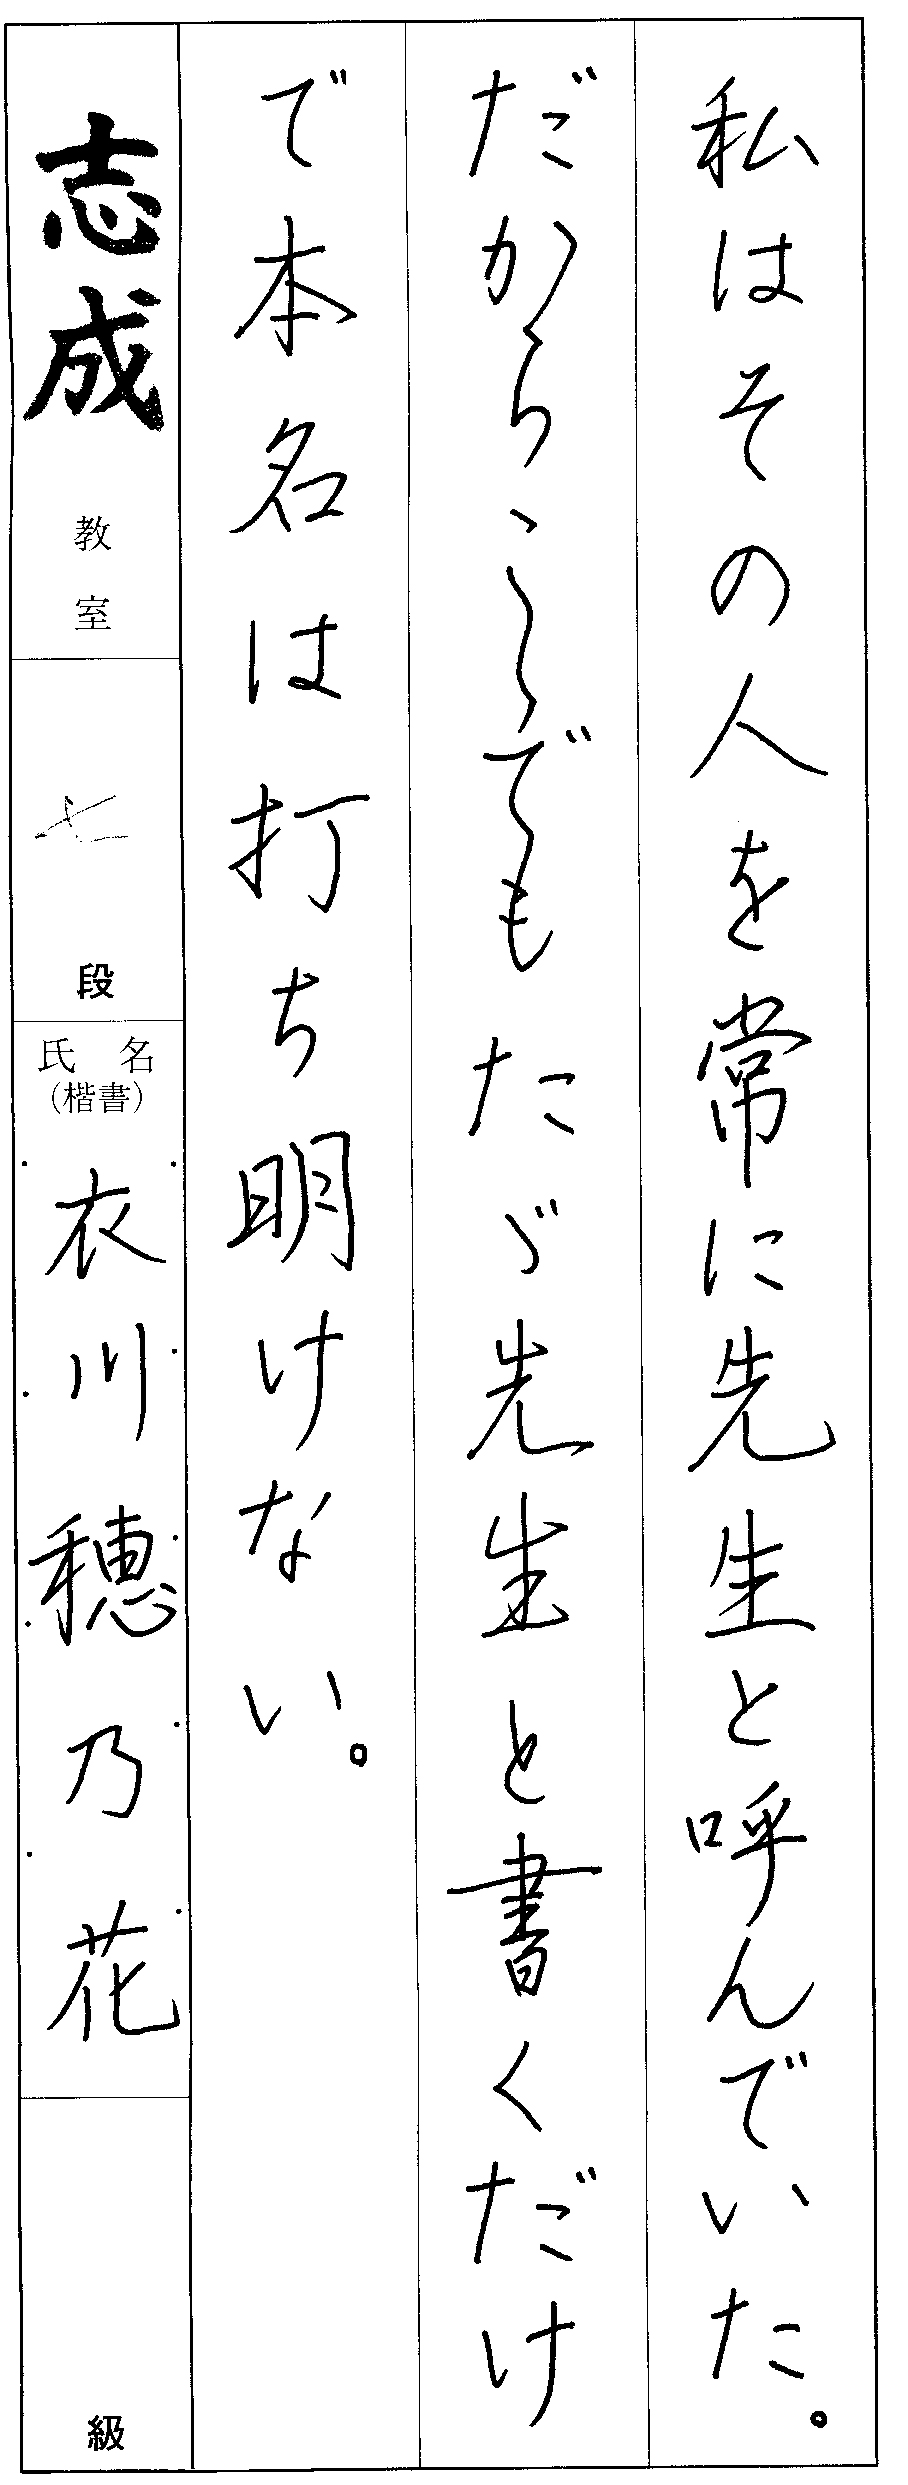 私はその人を常に先生と呼んでいた。
だからこゝでもたゞ先生と書くだけ
で本名は打ち明けない。
志成教室
七段
氏名
(楷書)
衣川穂乃花
級